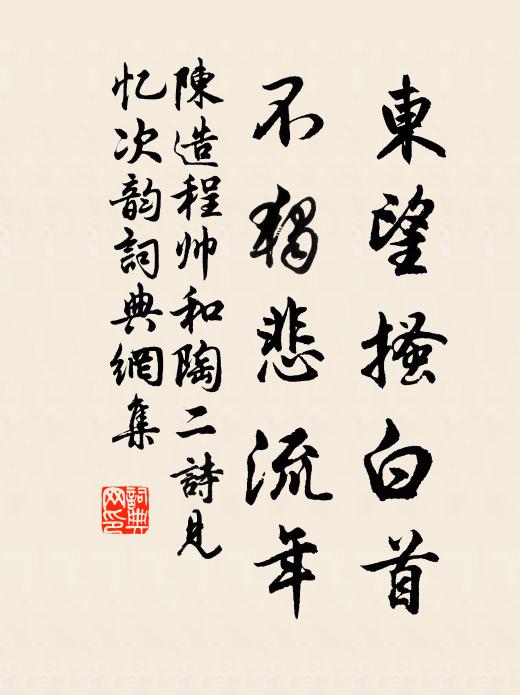 東望搔白首
不獨悲流年
陳造程帅和陶二詩見
忆次韵詞典網集
詞典网印